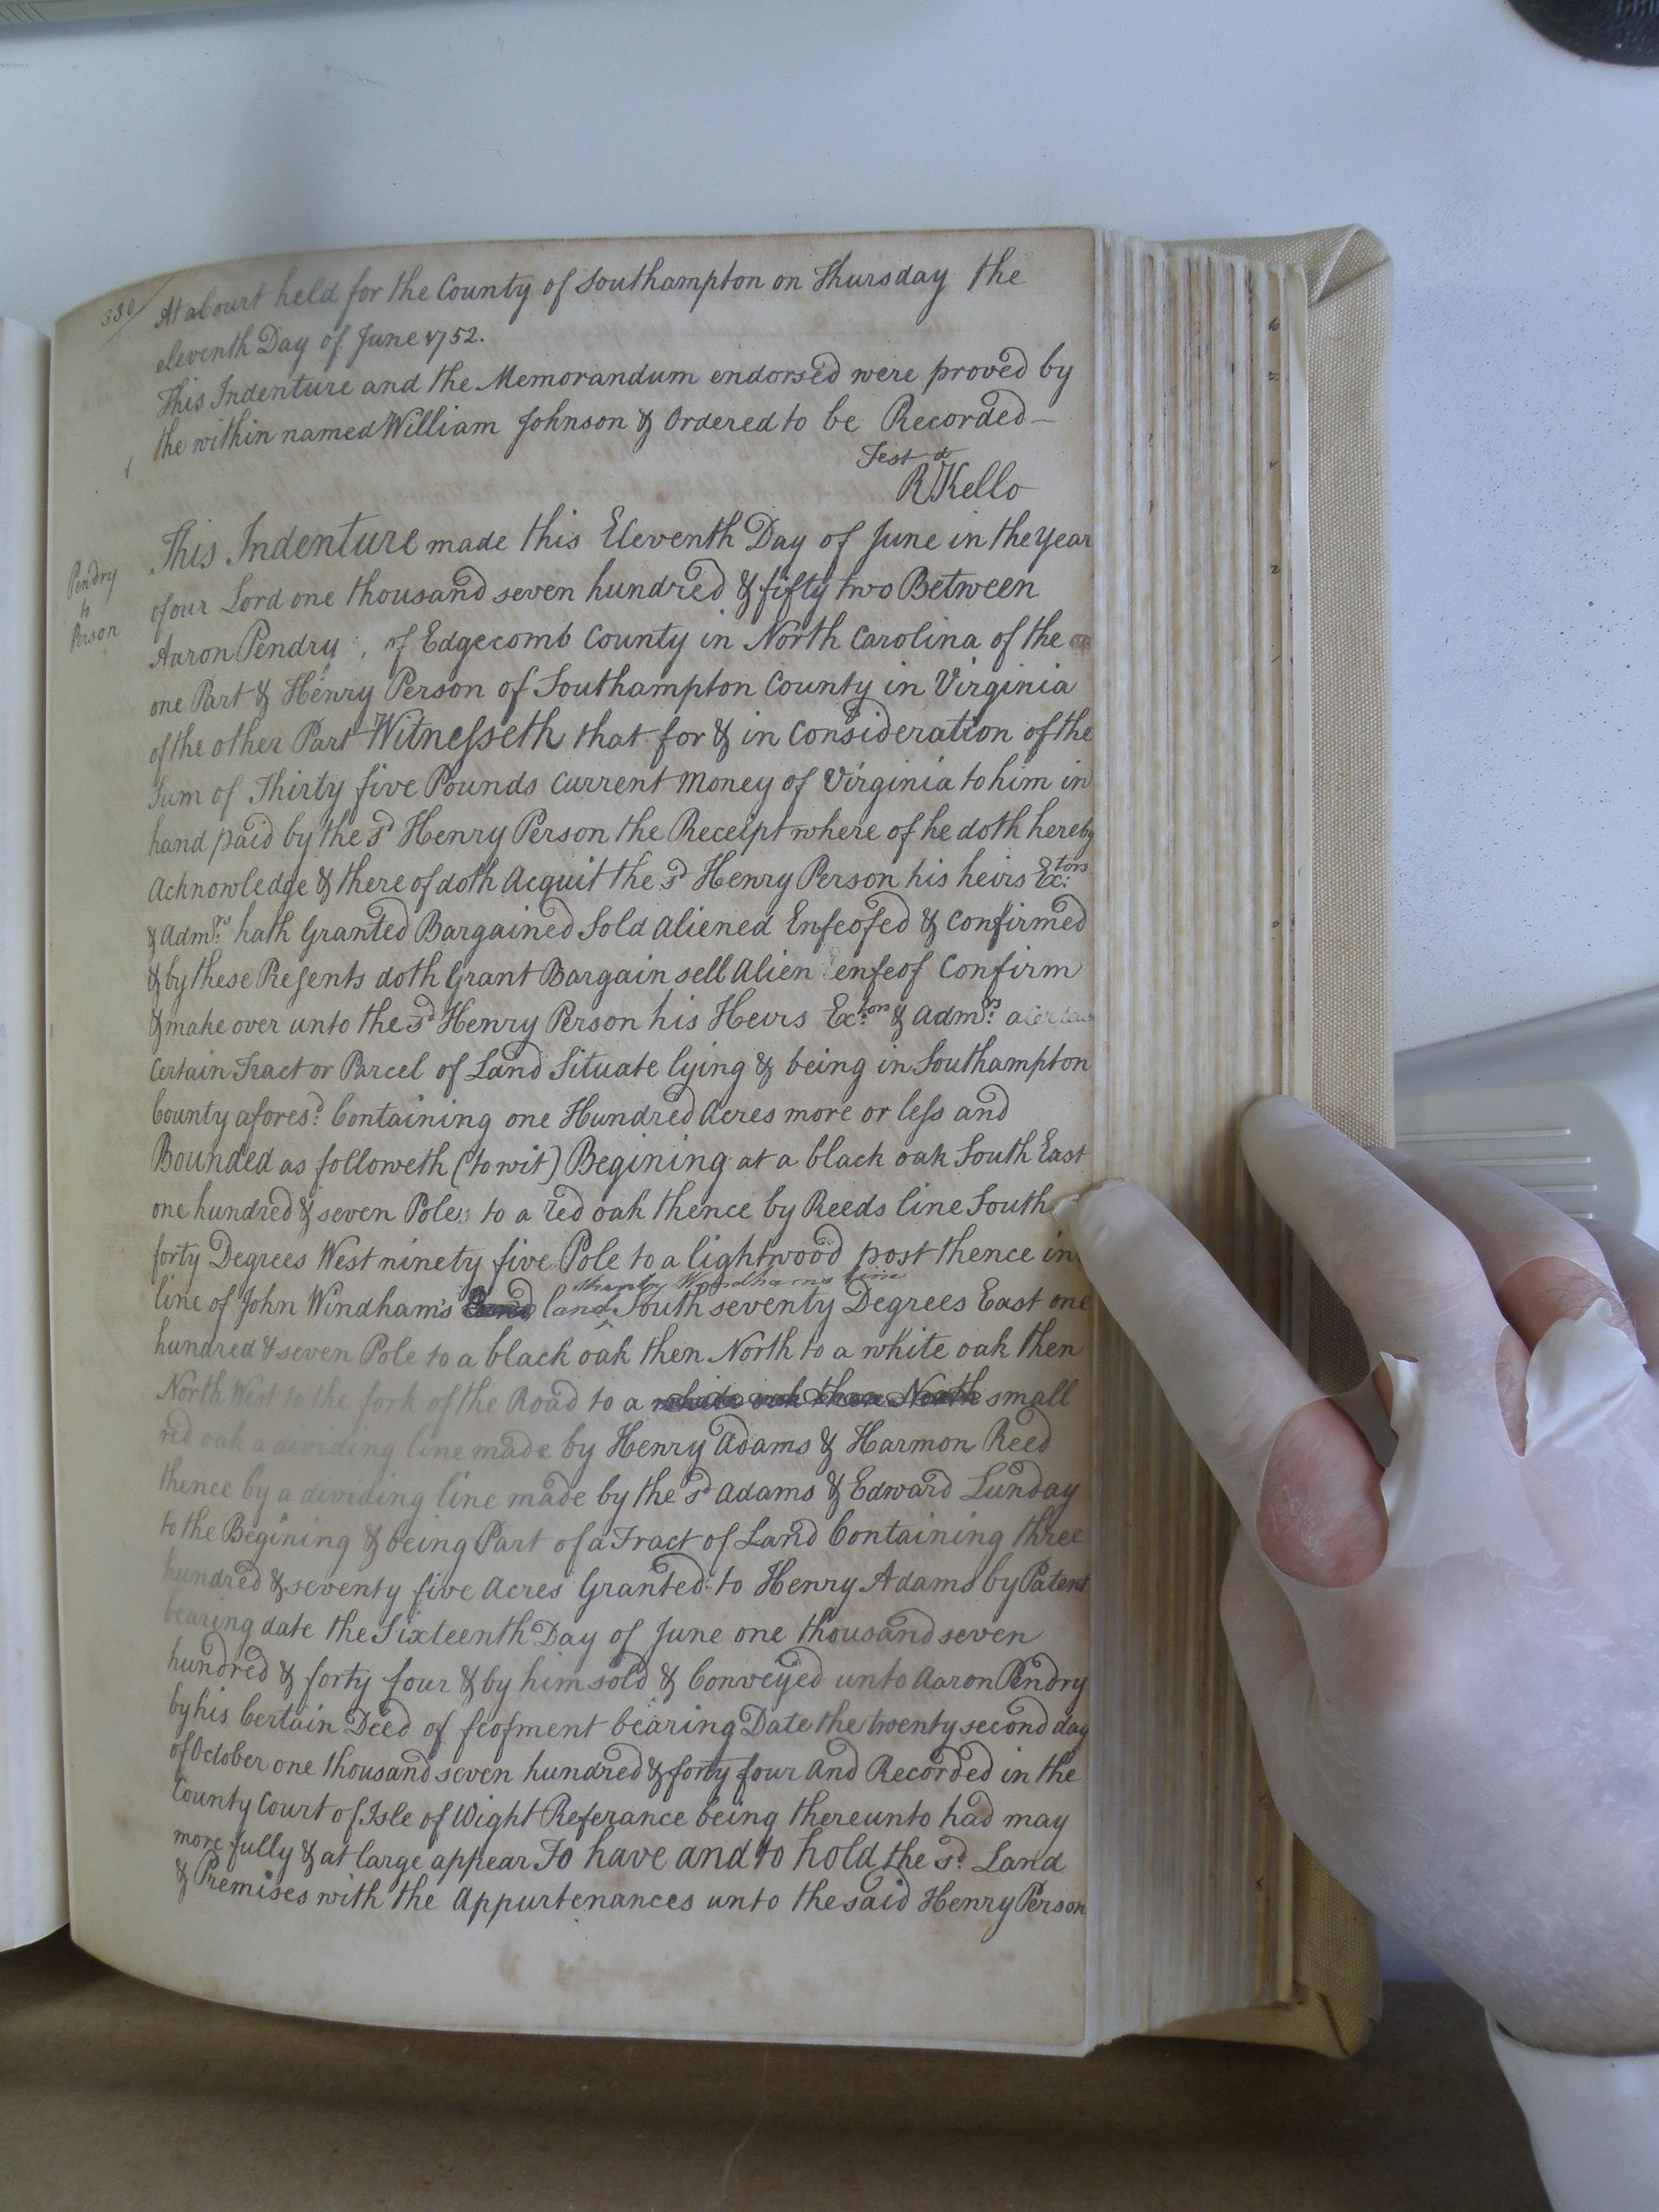 330
At a Court held for the County of Southampton on Thursday the
eleventh Day of June 1752.
This Indenture and the Memorandum endorsed were proved by
the within named William Johnson & Ordered to be Recorded—
Test
R Kello
Pendry
to
Person
This Indenture made this Eleventh Day of June in the Year
of our Lord one thousand seven hundred & fifty two Between
Aaron Pendry, of Edgecomb County in North Carolina of the
one Part & Henry Person of Southampton County in Virginia
of the other Part Witnesseth that for & in Consideration of the
Sum of Thirty five Pounds Current Money of Virginia to him in
hand paid by the sd Henry Person the Receipt where of he doth hereby
Acknowledge & there of doth Acquit the sd Henry Person his heirs Ex:tors
& Adm:rs hath Granted Bargained Sold Aliened Enfeofed & Confirmed
& by these Presents doth Grant Bargain sell Alien enfeof Confirm
& make over unto the sd Henry Person his Heirs Ex:tors & Adm:rs a
Certain Tract or Parcel of Land Situate lying & being in Southampton
County afores:d Containing one Hundred Acres more or less and
Bounded as followeth (to wit) Begining at a black oak South East
one hundred & seven Poles to a red oak thence by Reeds line South
forty Degrees West ninety five Pole to a lightwood post thence in
thence by Windhams line
line of John Windham's land South seventy Degrees East one
hundred & seven Pole to a black oak then North to a white oak then
North West to the fork of the Road to a white oak then North small
red oak a dividing line made by Henry Adams & Harmon Reed
thence by a dividing line made by the sd Adams & Edward Lunday
to the Begining & being Part of a Tract of Land Containing three
hundred & seventy five Acres Granted to Henry Adams by Patent
bearing date the Sixteenth Day of June one thousand seven
hundred & forty four & by him sold & Conveyed unto Aaron Pendry
by his Certain Deed of feofment bearing Date the twenty second day
of October one thousand seven hundred & forty four And Recorded in the
County Court of Isle of Wight Referance being thereunto had may
more fully & at large appear To have and to hold the sd Land
& Premises with the Appurtenances unto the said Henry Person